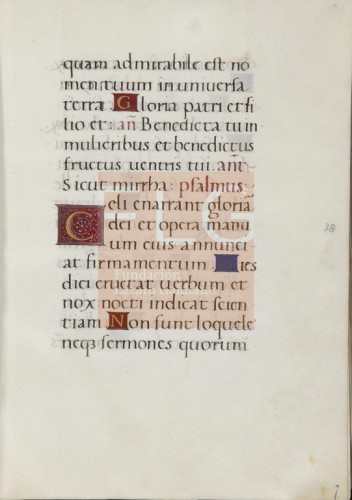 quam admirabile est no
men tuum in universa
terra Gloria patri et fi
lio et: añ Benedicta tu in
mulieribus et benedictus
fructus ventris tui: añt
Sicut mirrha: psalmus
Celi enarrant gloriã
dei et opera manu
um eius annunci
at firmamentum Dies
diei eructat verbum et
nox nocti indicat scien
tiam Non sunt loquele
neqꝫ sermones quorum
28
FLG
Fundación